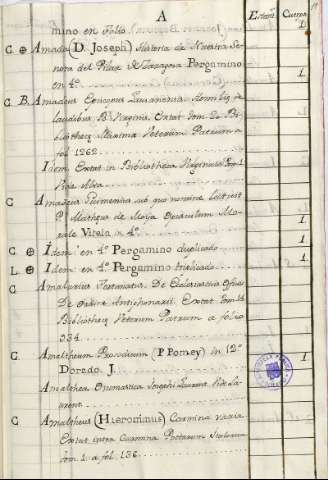 A
Estam. Cuerpos
mino en Folio 1.
C ⊕ Amada (D. Joseph) Historia de Nuestra Se-
ñora del Pilar de Zaragoza Pergamino
en 4º 1.
C. B. Amadeus Episcopus Lausanensis Homiliæ de
laudibus B. Virginis. Extat Tom. 20 Bi-
bliothecæ Maxima Veterum Patrum a
fol. 1262
Idem Extat in Bibliotheca Virginali Tom. 1
C Amadeus Guimenius sub quo nomine latet
P. Matheus de Moya Opusculum Mo-
rale en 4º 1.
C ⊕ Idem en 4º Pergamino duplicado 1.
L ⊕ Idem en 4º Pergamino triplicado 1.
C Amalarius Fortunatus. De Ecclesiasticis Officiis
De Ordine Antiphonarii. Extat Tom. 14
Bibliothecæ Veterum Patrum a folio
934.
C Amaltheum Prosodicum (P. Pomey) in 12º
Dorado. J. 1.
Amalthea Onomastica Josephi Laurent. Vide Lau-
rent.
C Amaltheus (Hieronimus) Carmina varia
Extat intra Carmina Poetarum Italorum
Tom. 1. a fol. 136.